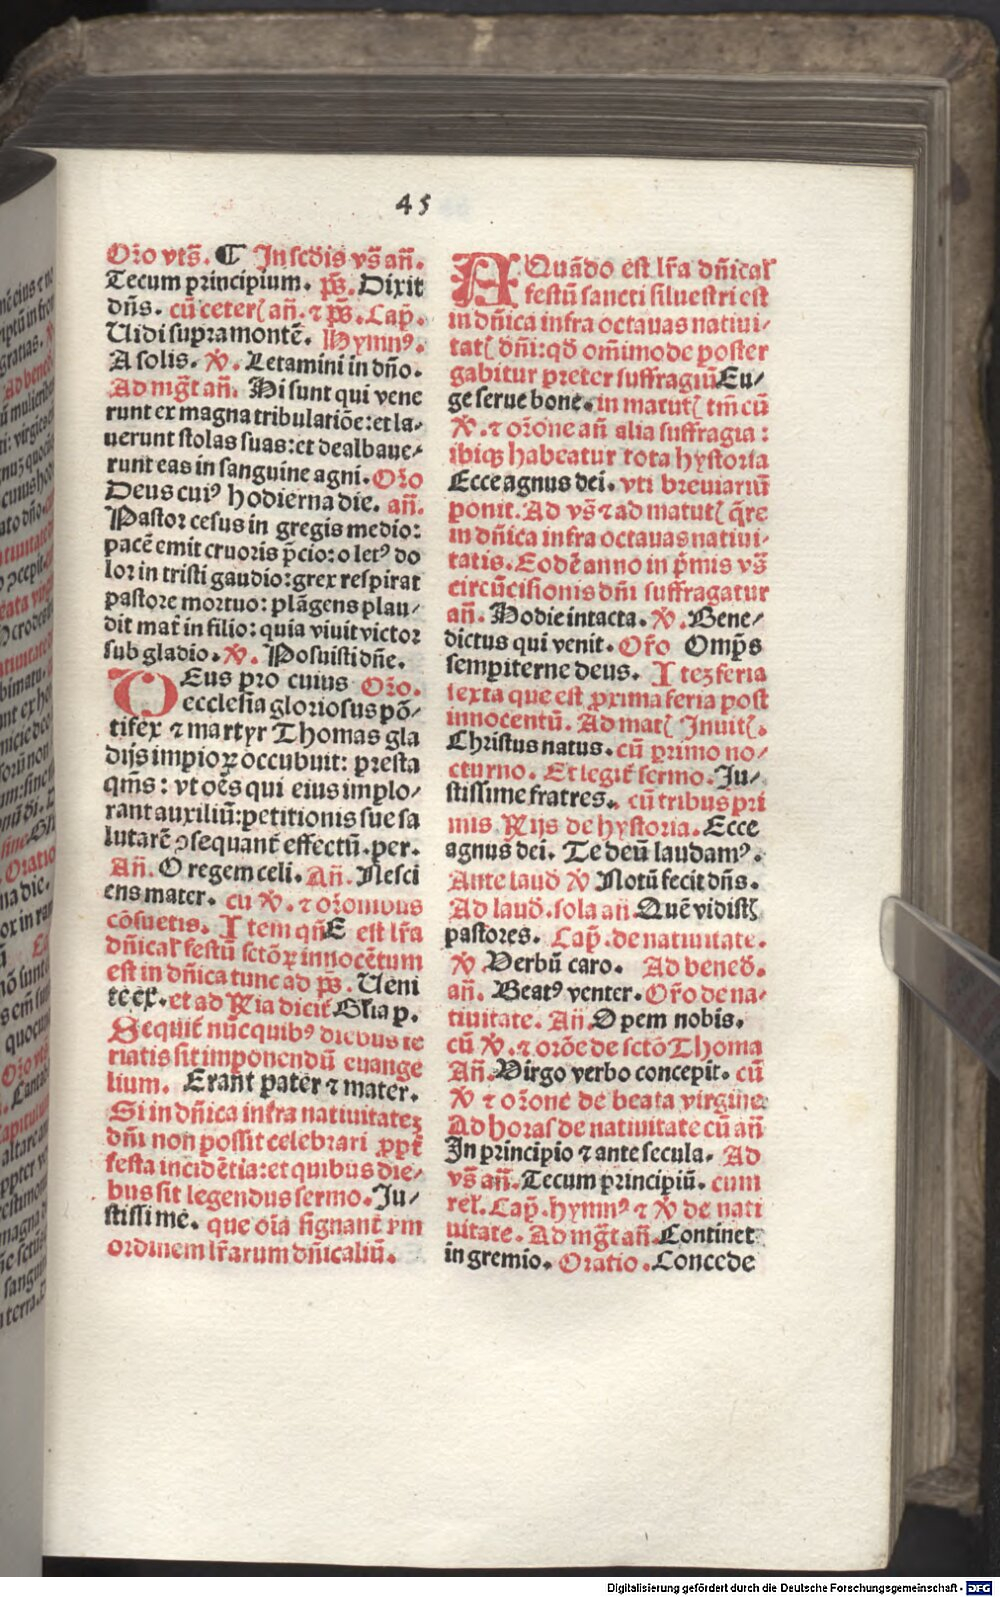 45
Oꝛo vts̃. ¶ In scḋis vs̃ añ.
Tecum principium. ps̃. Dixit
dñs. cũ ceterꝭ añ. ⁊ ps̃. Cap̃.
Uidi supra montẽ. Hymnꝰ.
A solis. ℣. Letamini in dño.
Ad mg̃t añ. Hi sunt qui vene
runt ex magna tribulatiõe: et la-
uerunt stolas suas: et dealbaue-
runt eas in sanguine agni. Oꝛo
Deus cuiꝰ hodierna die. añ.
Pastoꝛ cesus in gregis medio:
pacẽ emit cruoꝛis p̃cio: o letꝰ do
loꝛ in tristi gaudio: grex respirat
pastoꝛe moꝛtuo: plãgens plau-
dit mat̃ in filio: quia viuit victoꝛ
sub gladio. ℣. Posuisti dñe.
DEus pro cuius Oꝛo.
ecclesia gloriosus põ-
tifex ⁊ martyr Thomas gla
dijs impioꝝ occubuit: pꝛesta
qm̃s: vt oẽs qui eius imploꝛ-
rant auxiliũ: petitionis sue sa
lutarẽ ꝯsequant̃ effectũ. per.
Añ. O regem celi. Añ. Nesci
ens mater. cu ℣. ⁊ oꝛonibus
cõsuetis. Item qñE est lr̃a
dñical̃ festũ sctõꝝ innocẽtum
est in dñica tunc ad ps̃. Ueni
te ex. et ad ℟ia dicit̃ Gl̃ia p.
Sequit̃ nũc quibꝰ diebus te
riatis sit imponendũ euange
lium. Erant pater ⁊ mater.
Si in dñica infra natiuitatez
dñi non possit celebrari ꝓpt̃
festa incidẽtia: et quibus die-
bus sit legendus sermo. Ju-
stissime. que oĩa signant̃ ꝑm
oꝛdinem lr̃arum dñicaliũ.
AQuãdo est lr̃a dñical̃
festũ sancti siluestri est
in dñica infra octauas natiui-
tatꝭ dñi: qḋ om̃imode poster
gabitur pꝛeter suffragiũ Eu-
ge serue bone. in matutꝭ tm̃ cũ
℣. ⁊ oꝛone añ alia suffragia:
ibiqꝫ habeatur tota hystoꝛia
Ecce agnus dei. vti breuiariũ
ponit. Ad vs̃ ⁊ ad matutꝭ q̃re
in dñica infra octauas natiui-
tatis. Eodẽ anno in pꝛmis vs̃
circũcisionis dñi suffragatur
añ. Hodie intacta. ℣. Bene-
dictus qui venit. Oꝛo Omp̃s
sempiterne deus. Itez feria
sexta que est ꝓxima feria post
innocentũ. Ad matꝭ Inuitꝭ.
Christus natus. cũ pꝛimo no-
cturno. Et legit̃ sermo. Ju-
stissime fratres. cũ tribus pꝛi
mis ℟ijs de hystoꝛia. Ecce
agnus dei. Te deũ laudamꝰ.
Ante lauḋ ℣ Notũ fecit dñs.
Ad lauḋ. sola añ Quẽ vidistꝭ
pastoꝛes. Cap̃. de natiuitate.
℣. Uerbũ caro. Ad beneḋ.
añ. Beatꝰ venter. Oꝛo de na-
tiuitate. Añ. O pem nobis.
cũ ℣. ⁊ oꝛõe de sctõ Thoma
Añ. Uirgo verbo concepit. cũ
℣ ⁊ oꝛone de beata virgine
Ad hoꝛas de natiuitate cũ añ
In pꝛincipio ⁊ ante secula. Ad
vs̃ añ. Tecum pꝛincipiũ. cum
rel̃. Cap̃. hymnꝰ ⁊ ℣ de nati
uitate. Ad mg̃t añ. Continet
in gremio. Oratio. Concede
Digitalisierung gefördert durch die Deutsche Forschungsgemeinschaft - DFG